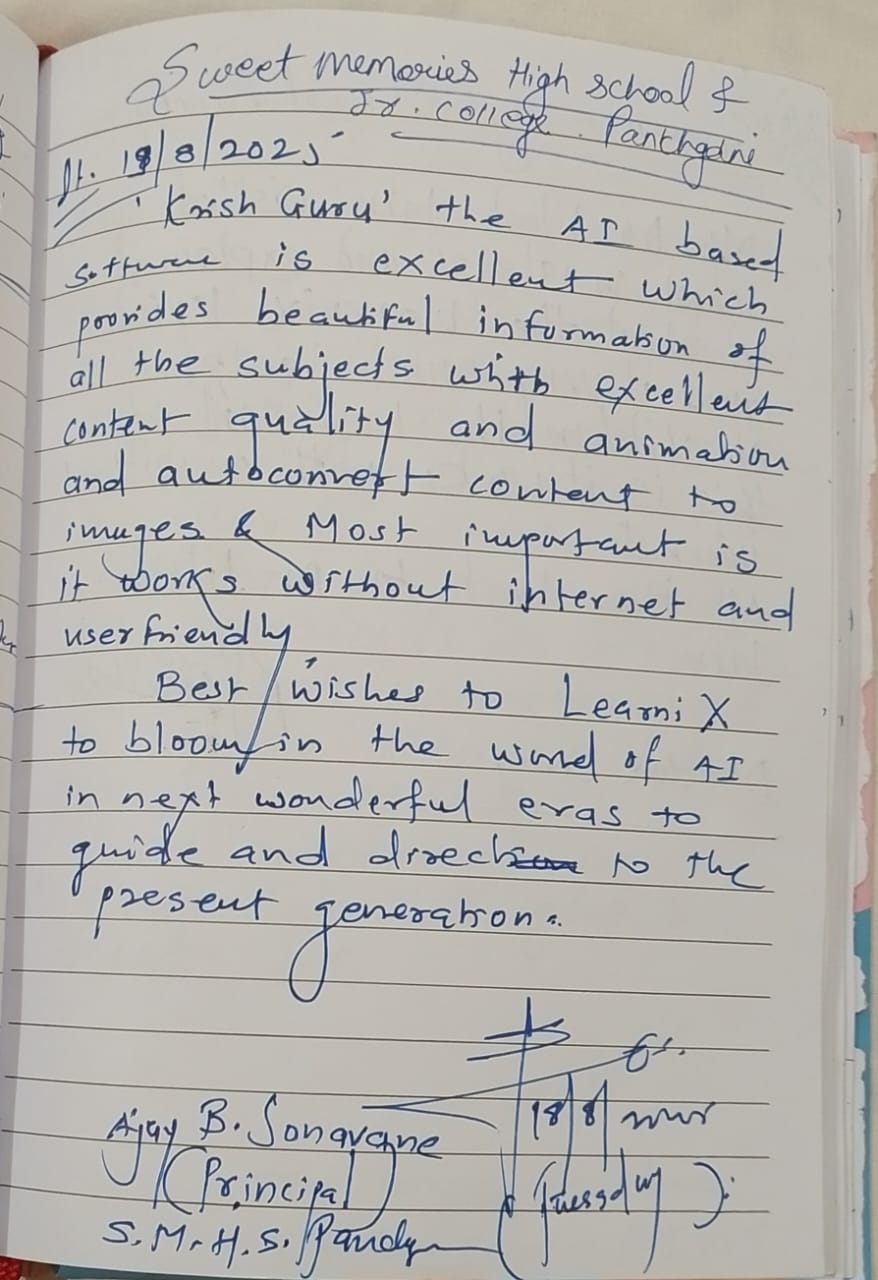 Sweet memories High school &
Jr. College. Panchgani
Dt. 19/8/2025
'Krish Guru' the AI based
software is excellent which
provides beautiful information of
all the subjects whith excellent
content quality and animation
and autoconvert content to
images & Most important is
it works without internet and
user friendly
Best wishes to LearniX
to bloom in the world of AI
in next wonderful eras to
guide and direct to the
present generation.
Ajay B. Sonavane
(Principal)
S.M.H.S.
18/8/
(Tuesday)